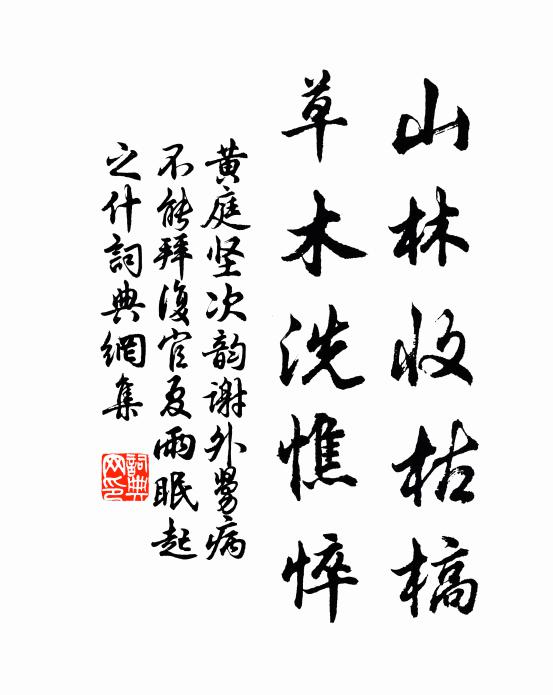 山林收枯槁
草木洗憔悴
黄庭坚次韵谢外舅病
不能拜復官夏雨眠起
之什詞典網集
詞典
网印